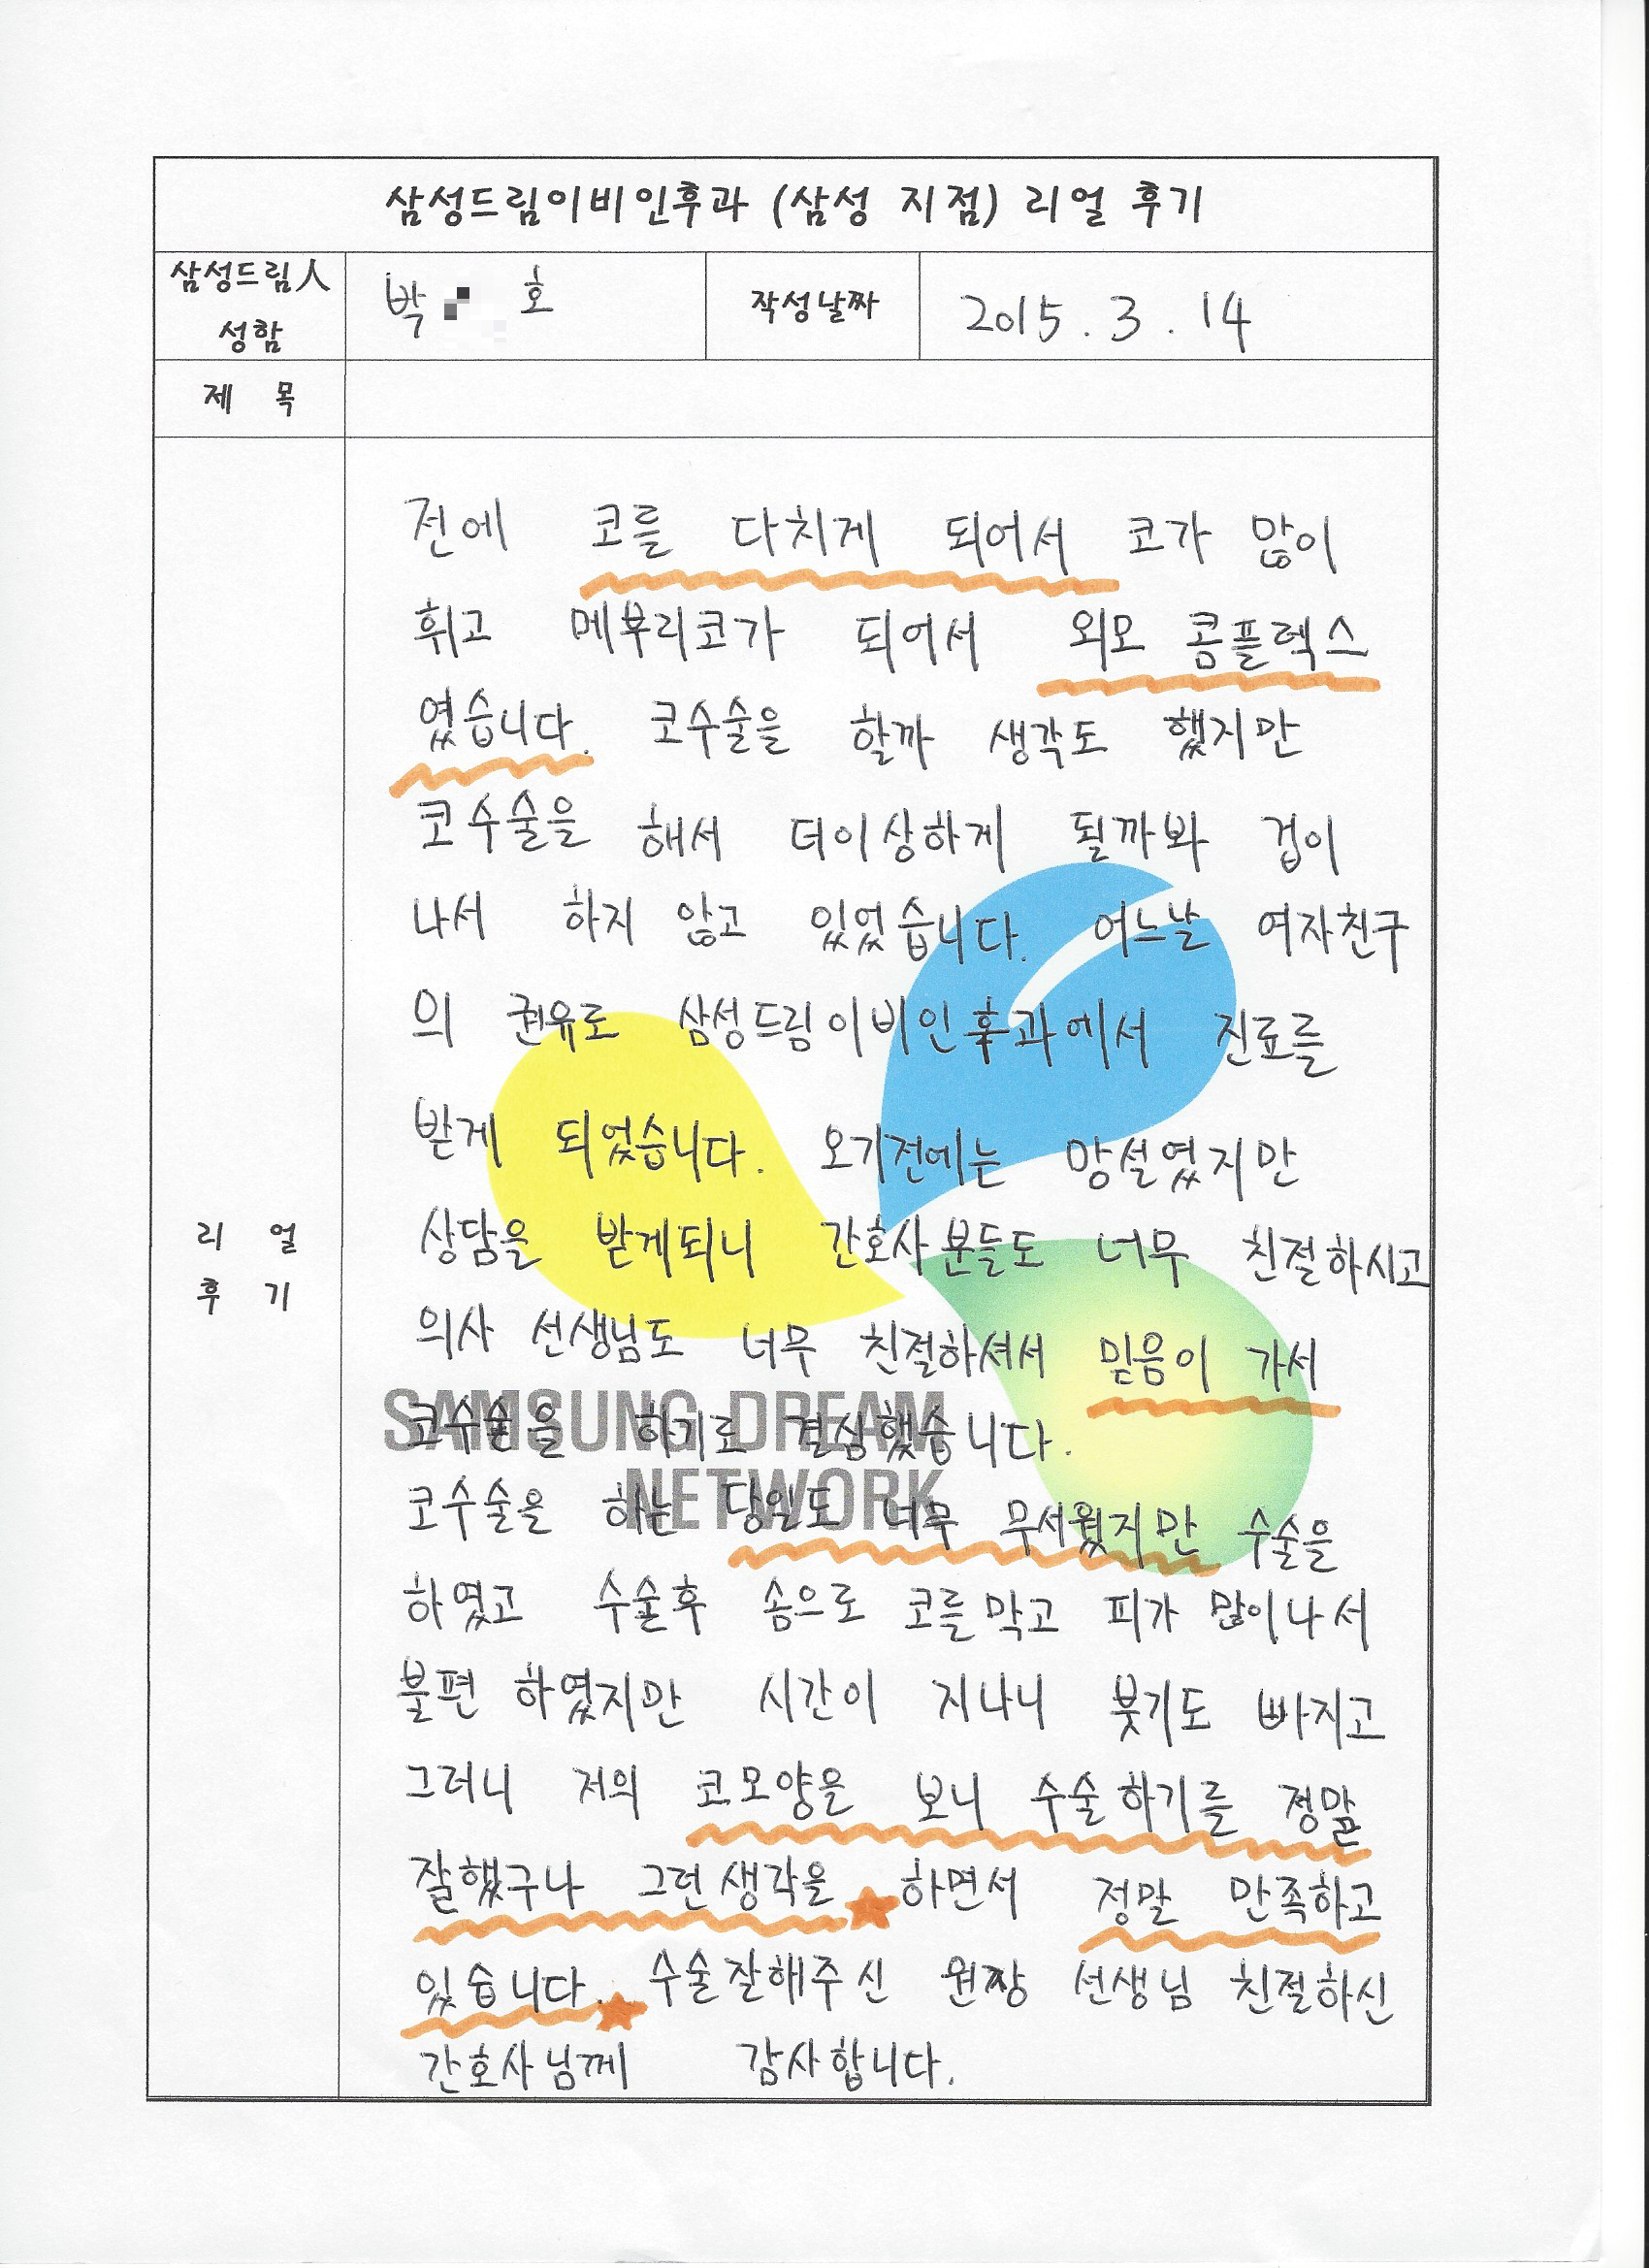 삼성드림이비인후과 (삼성 지점) 리얼 후기
삼성드림人 성함
박 호
작성날짜
2015. 3. 14
제 목
리 얼 후 기
전에 코를 다치게 되어서 코가 많이
휘고 메부리코가 되어서 외모 콤플렉스
였습니다. 코수술을 할까 생각도 했지만
코수술을 해서 더이상하게 될까봐 겁이
나서 하지 않고 있었습니다. 어느날 여자친구
의 권유로 삼성드림이비인후과에서 진료를
받게 되었습니다. 오기전에는 망설였지만
상담을 받게되니 간호사분들도 너무 친절하시고
의사 선생님도 너무 친절하셔서 믿음이 가서
코수술을 하기로 결심했습니다.
SAMSUNG DREAM
NETWORK
코수술을 하는 당일도 너무 무서웠지만 수술을
하였고 수술후 솜으로 코를막고 피가 많이나서
불편 하였지만 시간이 지나니 붓기도 빠지고
그러니 저의 코모양을 보니 수술하기를 정말
잘했구나 그런생각을 하면서 정말 만족하고
있습니다. 수술잘해주신 원장 선생님 친절하신
간호사님께 감사합니다.